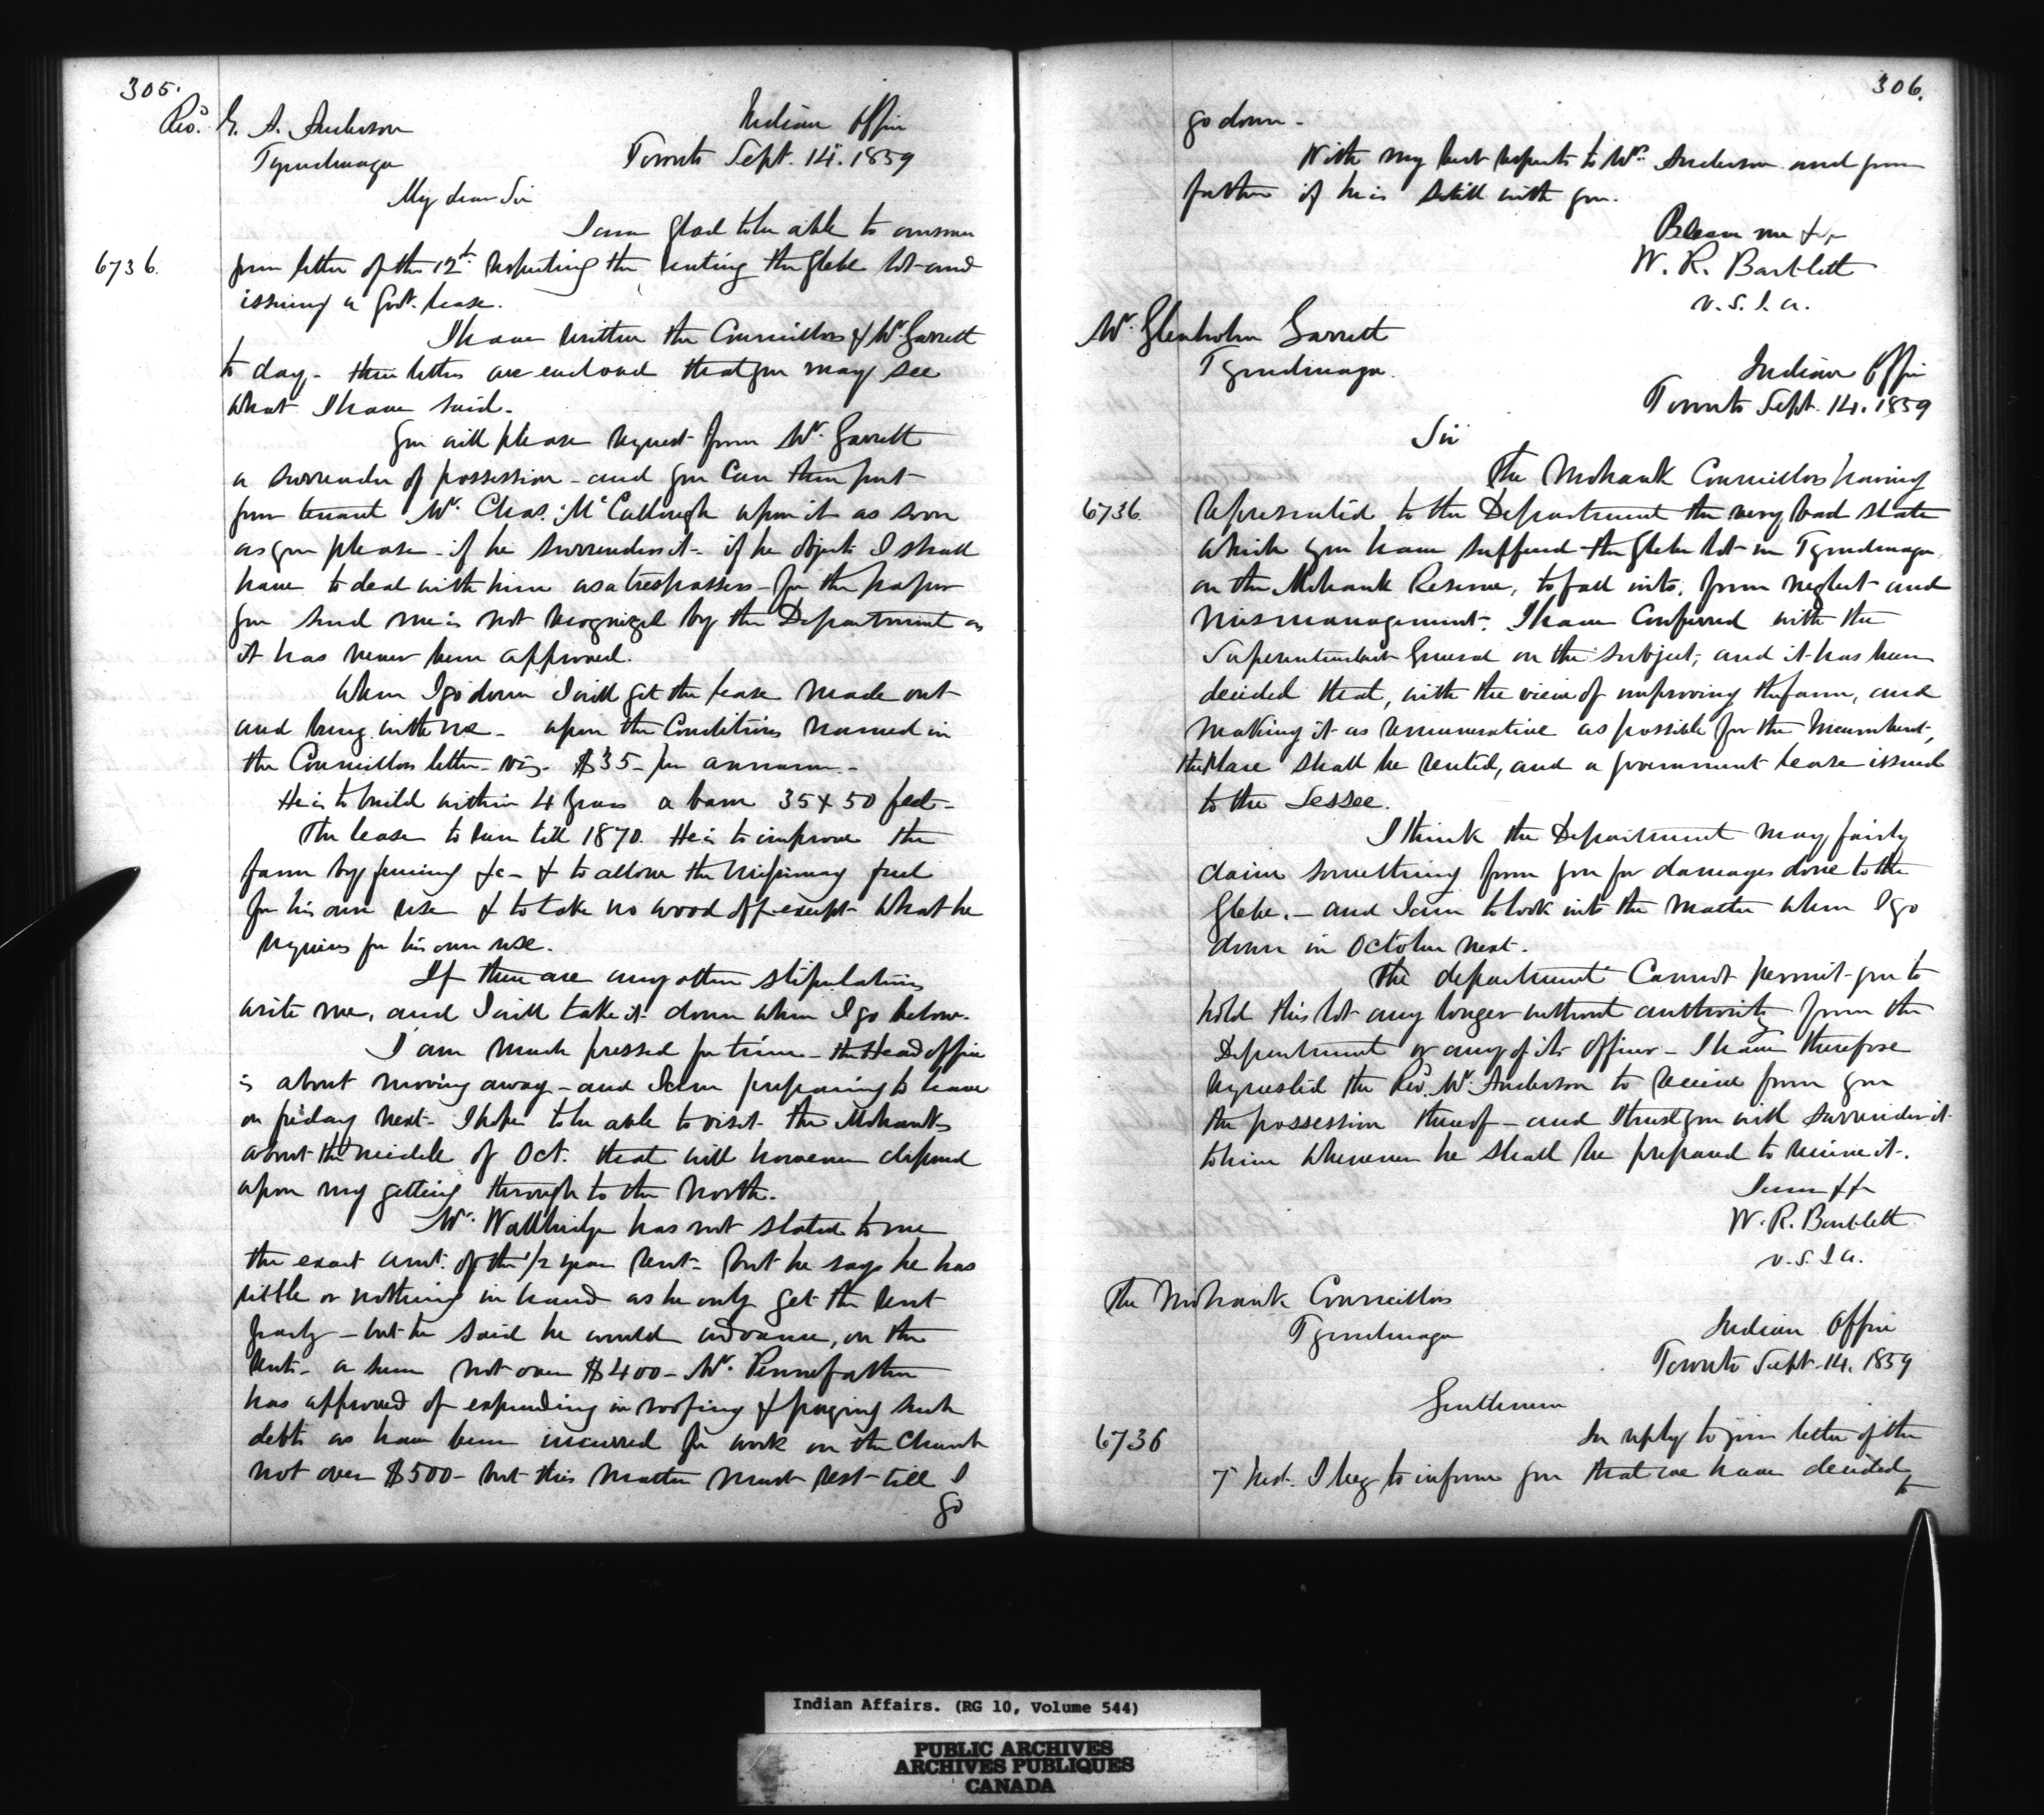 305.
Revd. G. A. Anderson
Indian Office
Tyendinaga
Toronto Sept. 14. 1859
My dear Sir
I am glad to be able to answer
6736.
your letter of the 12th respecting the renting the glebe lot and
issuing a Govt. lease.
I have written the Councillors & Mr. Garrett
to day - their letters are enclosed that you may see
what I have said.
You will please request from Mr. Garrett
a surrender of possession - and you can then put
your tenant Mr. Chas. McCullough upon it as soon
as you please - if he surrenders it - if he objects I shall
have to deal with him as a trespasser - for the paper
you send me is not recognized by the Department as
it has never been approved.
When I go down I will get the lease made out
and bring with me - upon the Conditions named in
the Councillors letter - viz. $35 - per annum -
He is to build within 4 years a barn 35 x 50 feet -
The lease to run till 1870. He is to improve the
farm by fencing &c - & to allow the Missionary fuel
for his own use & to take no wood off except what he
requires for his own use.
If there are any other stipulations
write me, and I will take it down when I go below.
I am much pressed for time - the Head office
is about moving away - and I am preparing to leave
on friday next - I hope to be able to visit the Mohawks
about the middle of Oct. that will however depend
upon my getting through to the North.
Mr. Wallbridge has not stated to me
the exact amt. of the 1/2 year rent - but he says he has
little or nothing in hand as he only got the rent
partly - but he said he would advance, on the
rents - a sum not over $400 - Mr. Pennefather
has approved of expending in roofing & paying such
debts as have been incurred for work on the Church
not over $500 - but this matter must rest till I
go
306.
go down -
With my best respects to Mrs. Anderson and your
father if he is still with you.
Believe me &c
W. R. Bartlett
V. S. I. A.
Mr. Glenholm Garrett
Tyendinaga.
Indian Office
Toronto Sept. 14. 1859
Sir
The Mohawk Councillors having
6736.
represented to the Department the very bad state
which you have suffered the glebe lot in Tyendinaga
on the Mohawk Reserve, to fall into, from neglect and
mismanagement. I have Conferred with the
Superintendent General on the subject, and it has been
decided that, with the view of improving the farm, and
making it as remunerative as possible for the Incumbent,
the Place shall be rented, and a government lease issued
to the Lessee.
I think the Department may fairly
claim something from you for damages done to the
Glebe. - and I am to look into the matter when I go
down in October next.
The department Cannot permit you to
hold this lot any longer without authority from the
Department or any of its officers - I have therefore
requested the Revd. Mr. Anderson to receive from you
the possession thereof - and trust you will surrender it
to him whenever he shall be prepared to receive it.
I am &c
W. R. Bartlett
V. S. I. A.
The Mohawk Councillors
Tyendinaga
Indian Office
Toronto Sept. 14. 1859
Gentlemen
6736
In reply to your letter of the
7 Inst. I beg to inform you that we have decided
to
Indian Affairs. (RG 10, Volume 544)
PUBLIC ARCHIVES
ARCHIVES PUBLIQUES
CANADA